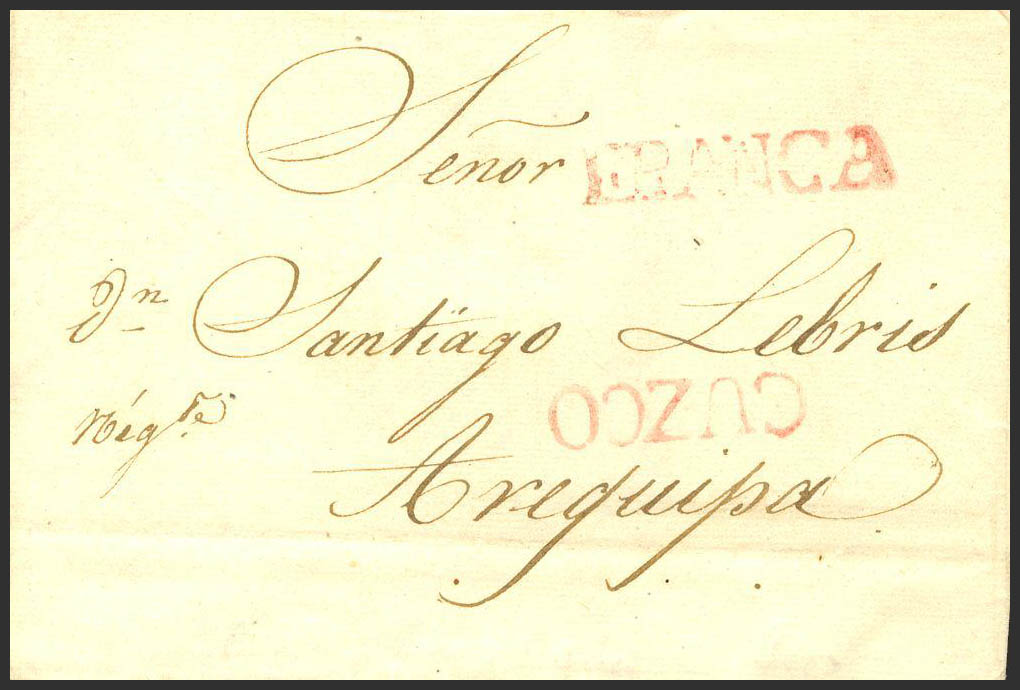 Señor FRANCA
Dn Santiago Lebris
CUZCO
Arequipa